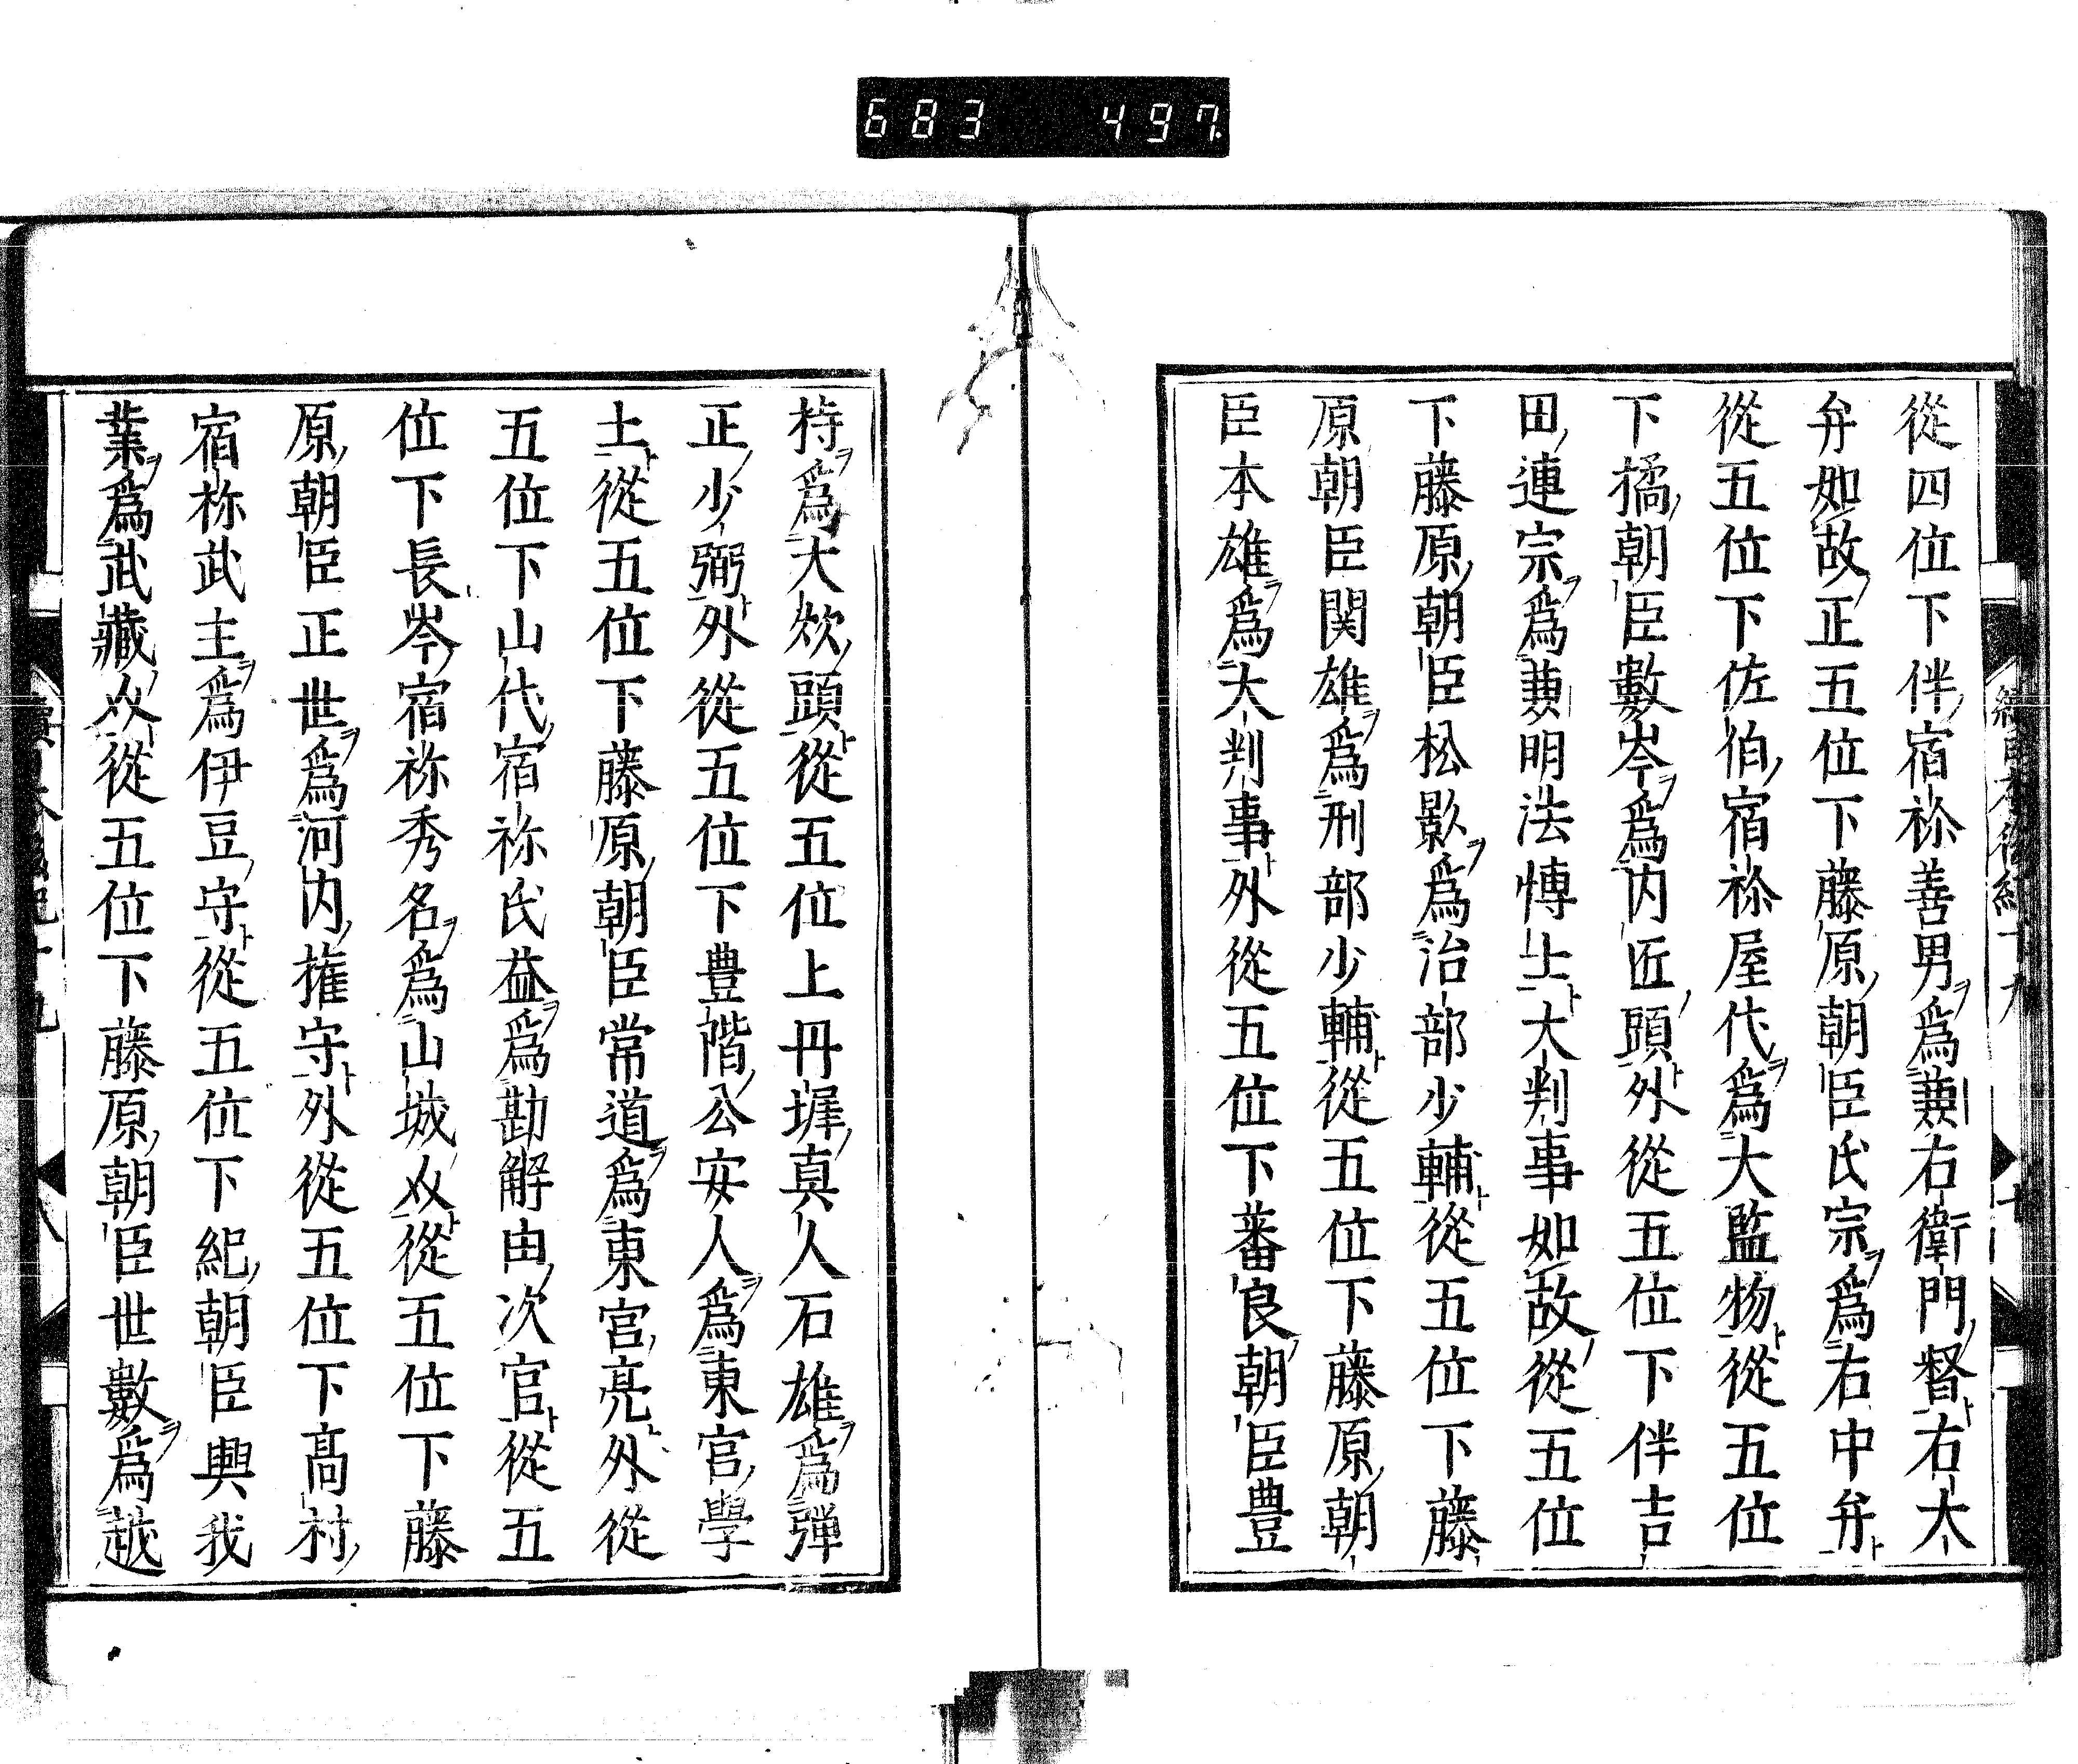 683 497
從四位下伴宿祢善男爲兼右衛門督右大
弁如故正五位下藤原朝臣氏宗爲右中弁
從五位下佐伯宿祢屋代爲大監物從五位
下橘朝臣數岑爲内匠頭外從五位下伴吉
田連宗爲兼明法博士大判事如故從五位
下藤原朝臣松影爲治部少輔從五位下藤
原朝臣関雄爲刑部少輔從五位下藤原朝
臣本雄爲大判事外從五位下蕃良朝臣豊
持爲大炊頭從五位上丹墀真人石雄爲彈
正少弼外從五位下豊階公安人爲東宮學
士從五位下藤原朝臣常道爲東宮亮外從
五位下山代宿祢氏益爲勘解由次官從五
位下長岑宿祢秀名爲山城从從五位下藤
原朝臣正世爲河内權守外從五位下髙村
宿祢武主爲伊豆守從五位下紀朝臣興我
業爲武藏从從五位下藤原朝臣世數爲越